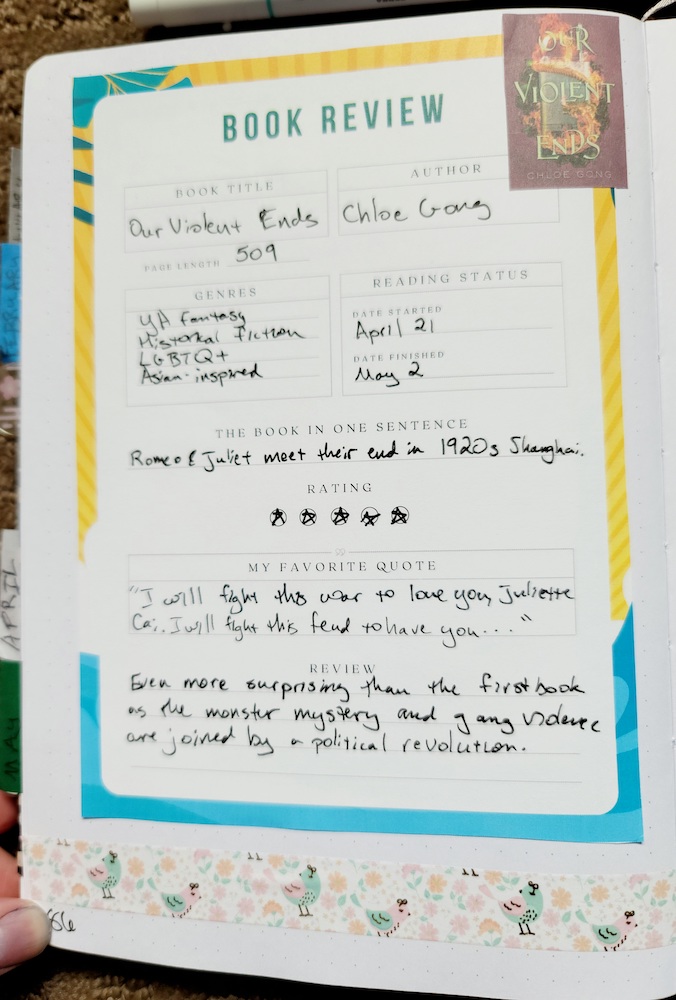 OUR
VIOLENT
ENDS
CHLOE GONG
BOOK REVIEW
BOOK TITLE
Our Violent Ends
AUTHOR
Chloe Gong
PAGE LENGTH 509
GENRES
YA Fantasy
Historical Fiction
LGBTQ+
Asian-inspired
READING STATUS
DATE STARTED
April 21
DATE FINISHED
May 2
THE BOOK IN ONE SENTENCE
Romeo & Juliet meet their end in 1920s Shanghai.
RATING
MY FAVORITE QUOTE
"I will fight this war to love you, Juliette
Cai. I will fight this feud to have you..."
REVIEW
Even more surprising than the first book
as the monster mystery and gang violence
are joined by a political revolution.
APRIL
MAY